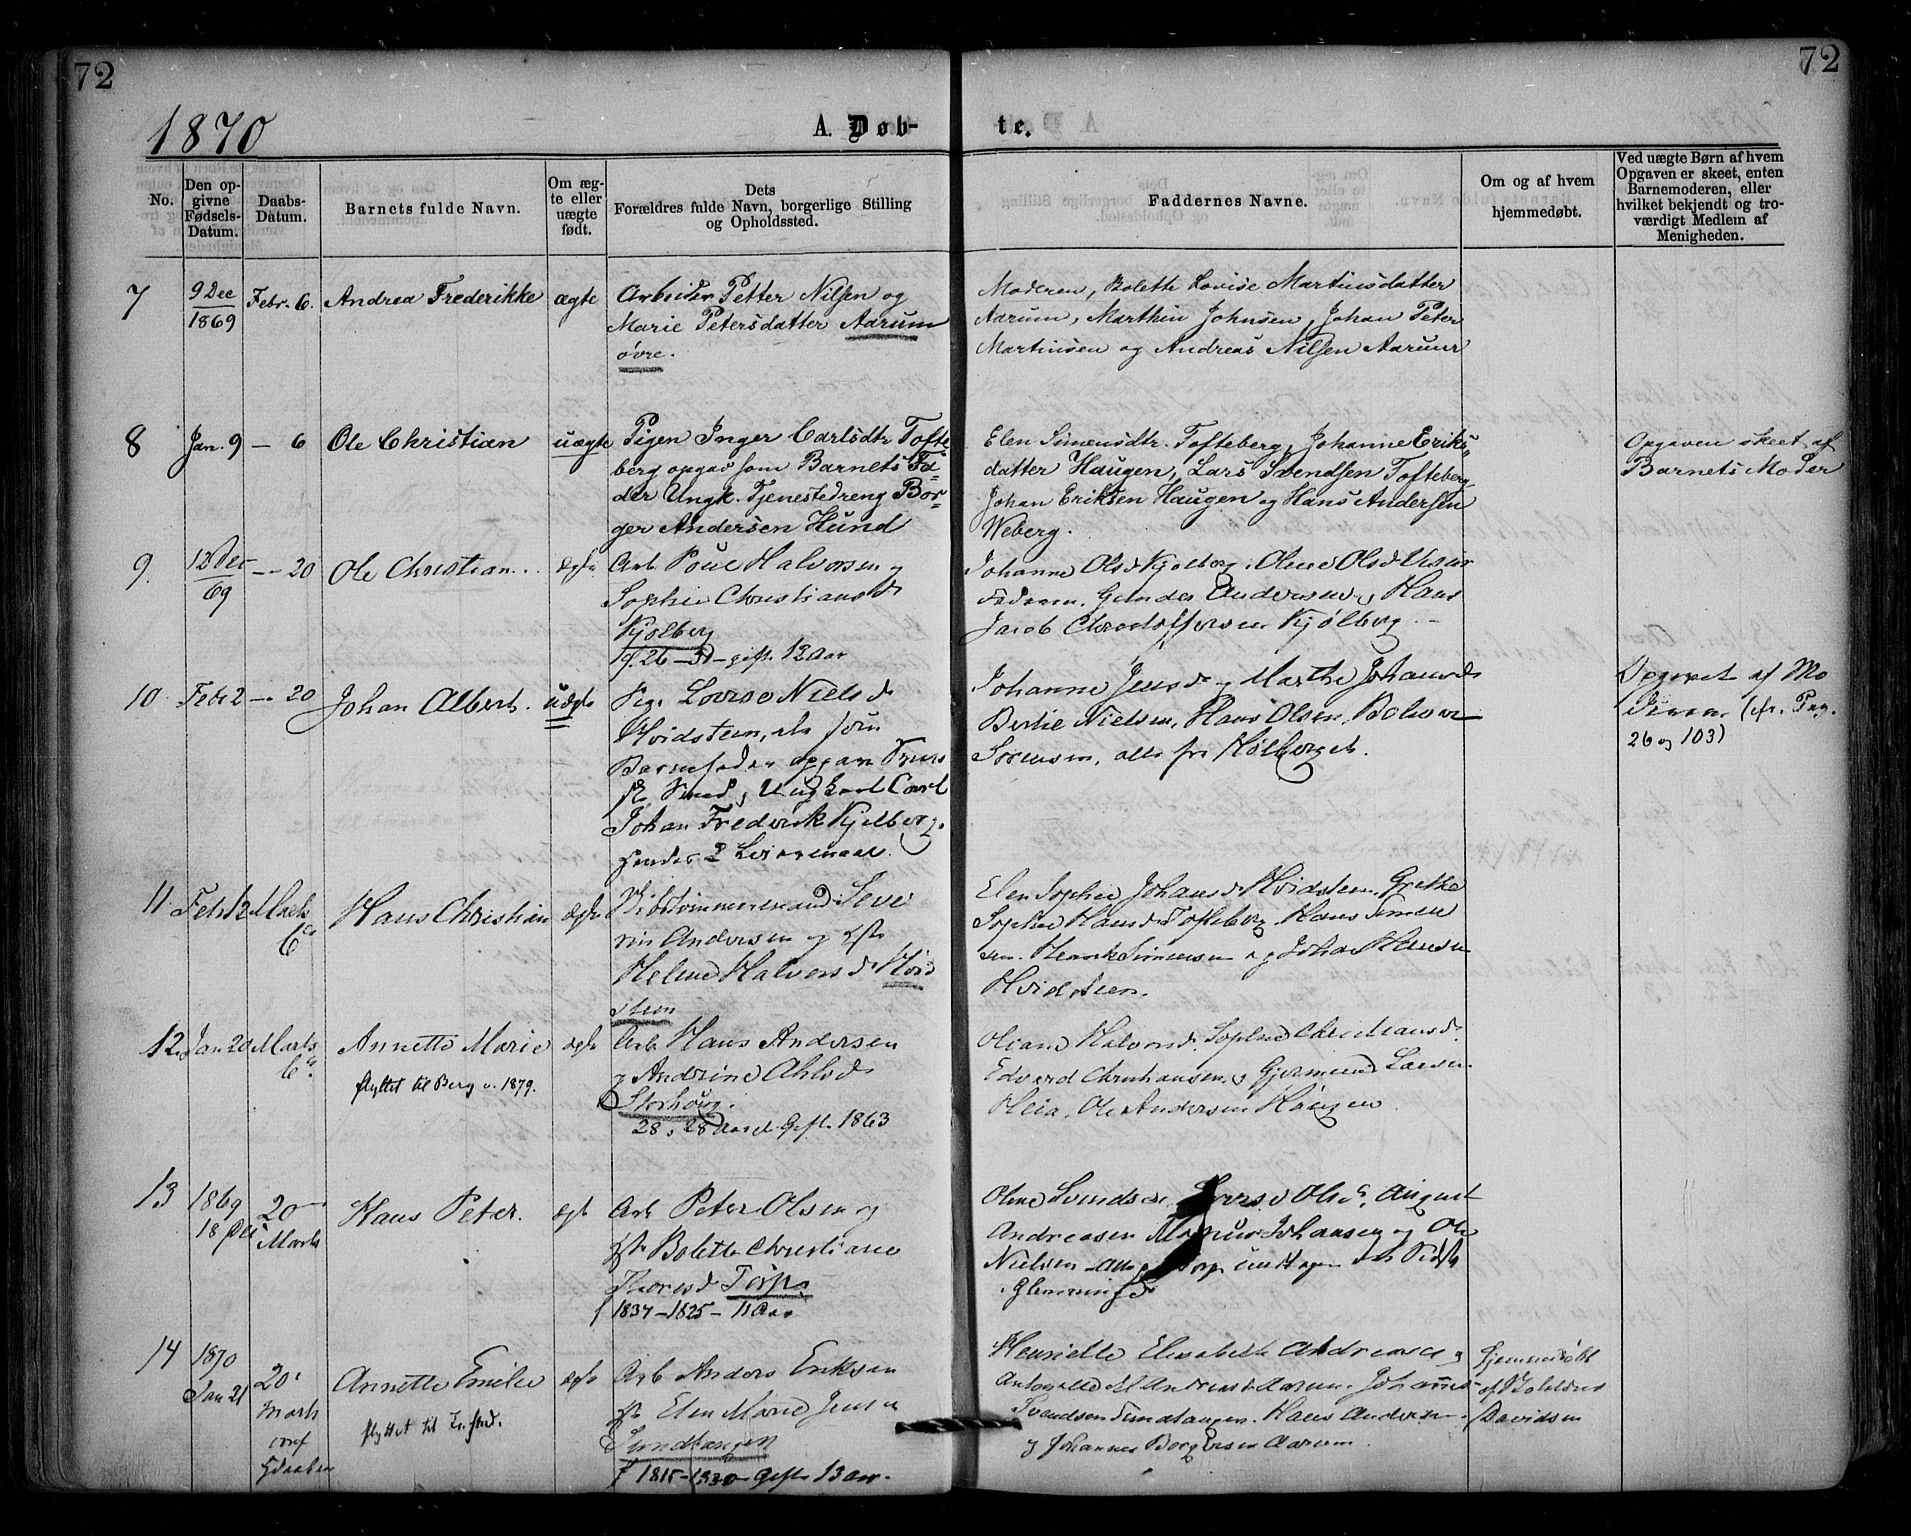 72
72
1870
A. Døb-
te.
No.
Den op-
givne
Fødsels-
Datum.
Daabs-
Datum.
Barnets fulde Navn.
Om æg-
te eller
uægte
født.
Dets
Forældres fulde Navn, borgerlige Stilling
og Opholdssted.
Faddernes Navne.
Om og af hvem
hjemmedøbt.
Ved uægte Børn af hvem
Opgaven er skeet, enten
Barnemoderen, eller
hvilket bekjendt og tro-
værdigt Medlem af
Menigheden.
7
9 Dec
1869
Febr. 6.
Andrea Frederikke
ægte
Arbeider Petter Nilsen og
Marie Petersdatter Aarum
øvre.
Moderen, Bolette Lovise Martinsdatter
Aarum, Marthin Johnsen, Johan Peter
Martinsen og Andreas Nilsen Aarum
8
Jan. 9
— 6
Ole Christian
uægte
Pigen Inger Carlsdtr. Tofte
berg opgav som Barnets Fa=
der Ungk. Tjenestedreng Bor=
ger Andersen Hund
Elen Simensdtr. Tofteberg, Johanne Eriks=
datter Haugen, Lars Svendsen Tofteberg,
Johan Eriksen Haugen og Hans Andersen
Weberg.
Opgaven skeet af
Barnets Moder
9.
12 Dec
69
— 20
Ole Christian
Arb Poul Halvorsen og
Sophie Christiansd
Kjølberg
f. 26 – 31 – gift. 12 Aar
Johanne Olsd Kjølberg, Olene Olsd
Faderen, Gunder Andersen og Hans
Jacob Christoffersen Kjølberg. –
10
Febr 2
— 20
Johan Albert.
uægte
Pige Lovise Nielsd
Hvidsteen, som
Barnefader opgav
Ungkarl Carl
Johan Frederik Kjølberg.
hendes 2 Leiermaal.
Johanne Jensd og Marthe Johansd
Bertie Nielsen, Hans Olsen,
Sørensen, alle fr Kølberget.
Opgivet af Mo
deren (cfr. Pag.
26 og 103)
11.
Febr 12
Marts
6te
Hans Christian
ægte
Skibstømmermand Seve
rin Andersen og Hst
Helene Halvorsd Hvid
steen
Elen Sophie Johansd Hvidsteen, Grethe
Sophie Hansd Tofteberg, Hans Simen
sen. Henrik Simensen og Johan Hansen
Hvidsteen.
12
Jan 20
Marts
6te
Annette Marie
flyttet til Berg v. 1879.
ægte
Arb Hans Andersen
og Andrine
Storhaug.
28, 28 Aar Gift. 1863
Oliane Halvorsd. Sophie Christiansd.
Edvard Christiansen, og Gjermund Larsen
Heia, Ole Andersen Haugen
13
1869
18 Dec
20
Marts
Hans Peter.
ægte
Arb Peter Olsen og
Hst. Bolette Christiane
Thoresd Torp.
f 1837 – 1825 – 11 Aar
Olene Svendsd, Lovise Olsd. August
Andreasen Johansen og Ole
Nielsen – alle Torp undtagen
Glemminge
14
1870
Jan 21
20
Marts
conf
Gdaaben
Annette Emilie
flyttet til
ægte
Arb Anders Eriksen
Hst. Elen Marie Jensd
Sundtangen
f 1815 – 1830 – Gift. 13 Aar.
Henriette Elisabeth Andreasen og
Aarum. Johannes
Svendsen Sundtangen. Hans Andersen
og Johannes Borgersen Aarum.
Hjemmedøbt
af
Davidsen